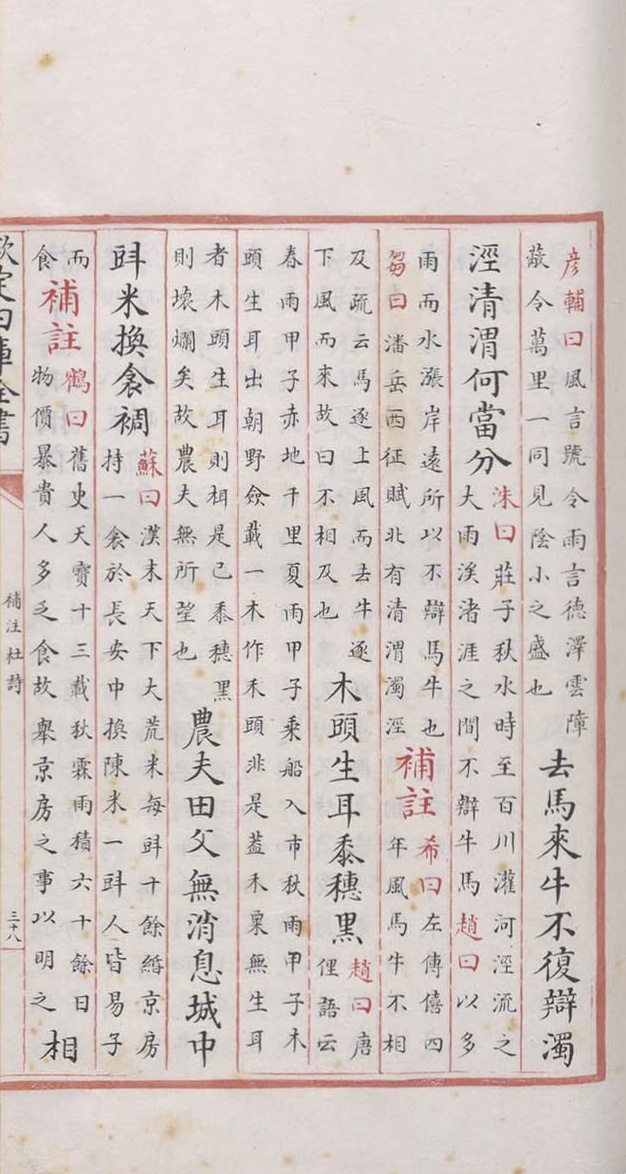 彦輔曰風言號令雨言德澤雲障
蔽令萬里一同見陰小之盛也
去馬來牛不復辯濁
涇清渭何當分
洙曰莊子秋水時至百川灌河涇流之
大雨涘渚涯之間不辯牛馬趙曰以多
雨而水漲岸遠所以不辯馬牛也
芻曰潘岳西征賦北有清渭濁涇
補註
希曰左傳僖四
年風馬牛不相
及疏云馬逐上風而去牛逐
下風而來故曰不相及也
木頭生耳黍穗黑
趙曰唐
俚語云
春雨甲子赤地千里夏雨甲子乘船入市秋雨甲子木
頭生耳出朝野僉載一木作禾頭非是蓋禾粟無生耳
者木頭生耳則相是已黍穗黑
則壞爛矣故農夫無所望也
農夫田父無消息城中
㪷米換衾裯
蘇曰漢末天下大荒米每㪷十餘緡京房
持一衾於長安中換陳米一㪷人皆易子
而
食
補註
鶴曰舊史天寶十三載秋霖雨積六十餘日
物價暴貴人多乏食故舉京房之事以明之
相
欽定四庫全書
補注杜詩
三十八